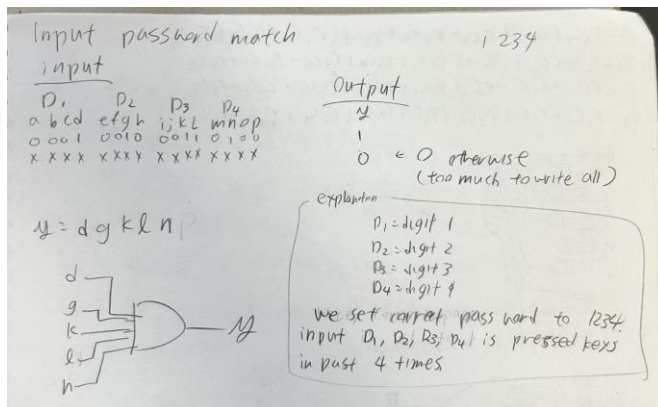 Input password match
1234
input
D1 D2 D3 D4
a b c d e f g h i j k L m n o p
0 0 0 1 0 0 1 0 0 0 1 1 0 1 0 0
x x x x x x x x x x x x x x x x
Output
y
1
0 ← 0 otherwise
(too much to write all)
y = d g k l n
d
g
k
l
n
y
explanation
D1 = digit 1
D2 = digit 2
D3 = digit 3
D4 = digit 4
we set correct password to 1234.
input D1, D2, D3, D4 is pressed keys
in past 4 times